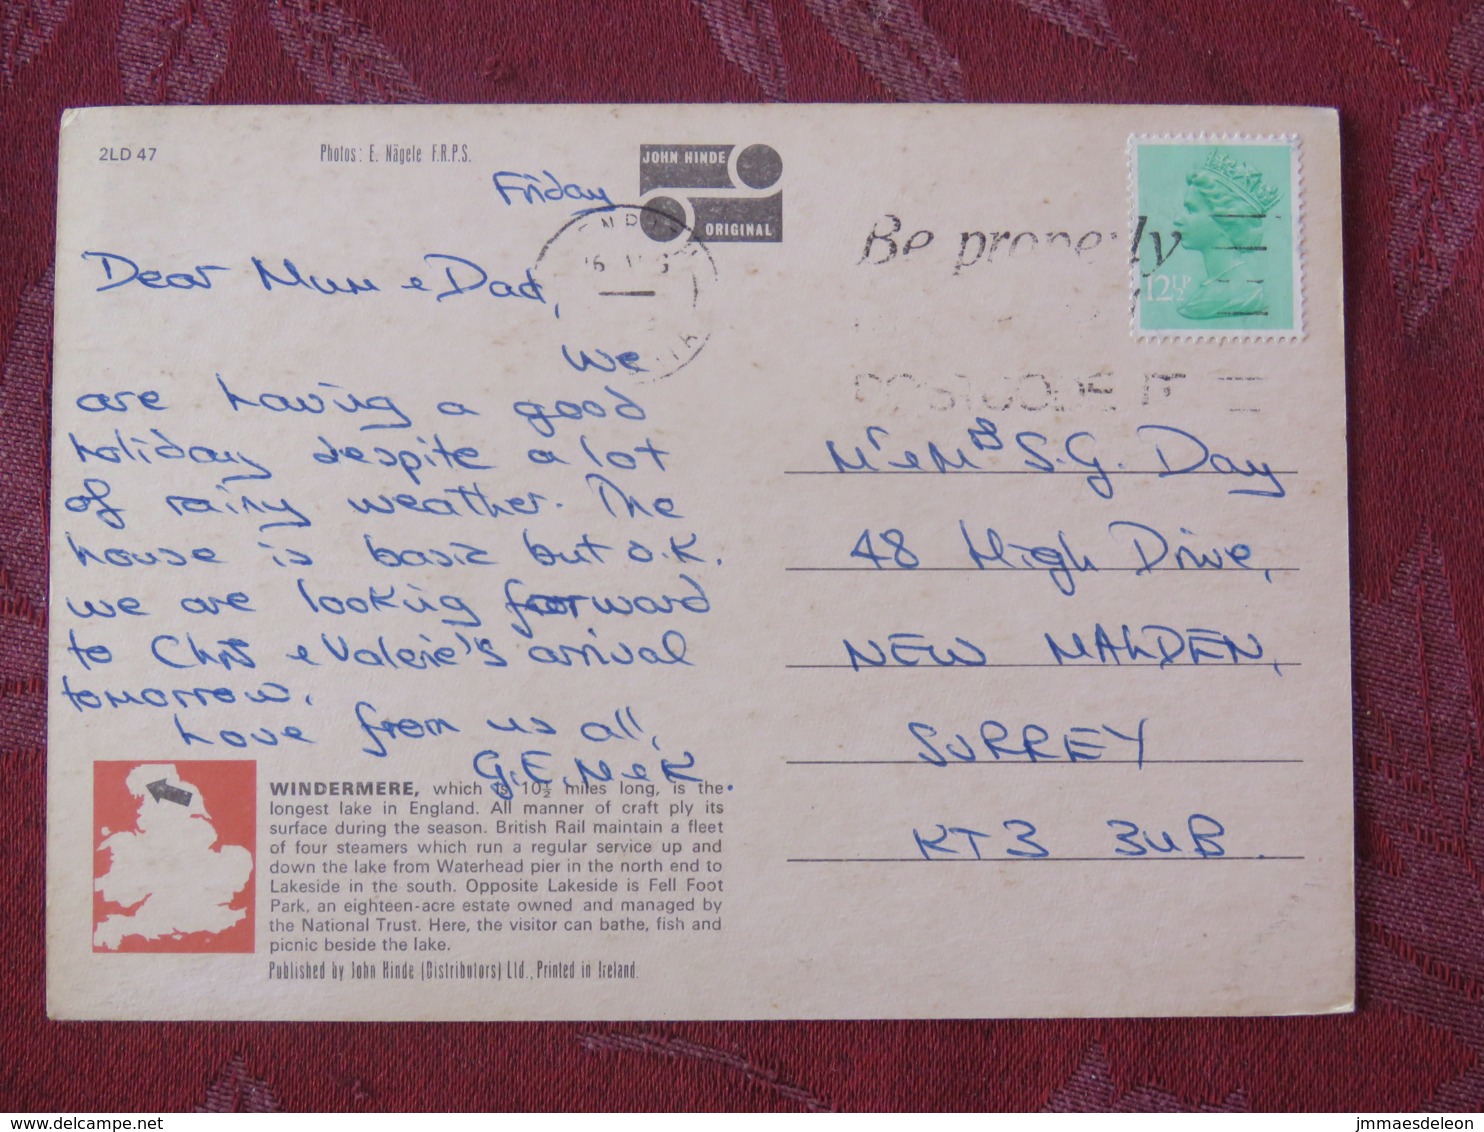 2LD 47
Photos: E. Nägele F.R.P.S.
JOHN HINDE
ORIGINAL
Friday
Dear Mum & Dad,
We
are having a good
holiday despite a lot
of rainy weather. The
house is basic but O.K.
We are looking forward
to Chris & Valerie's arrival
tomorrow.
Love from us all,
G.E.N & K.
WINDERMERE, which is 10½ miles long, is the
longest lake in England. All manner of craft ply its
surface during the season. British Rail maintain a fleet
of four steamers which run a regular service up and
down the lake from Waterhead pier in the north end to
Lakeside in the south. Opposite Lakeside is Fell Foot
Park, an eighteen-acre estate owned and managed by
the National Trust. Here, the visitor can bathe, fish and
picnic beside the lake.
Published by John Hinde (Distributors) Ltd., Printed in Ireland.
Be properly
POSTCODE IT
12½P
Mr & Mrs S.G. Day
48 High Drive,
NEW MALDEN,
SURREY
KT3 3UB.
delcampe.net
jmmaesdeleon